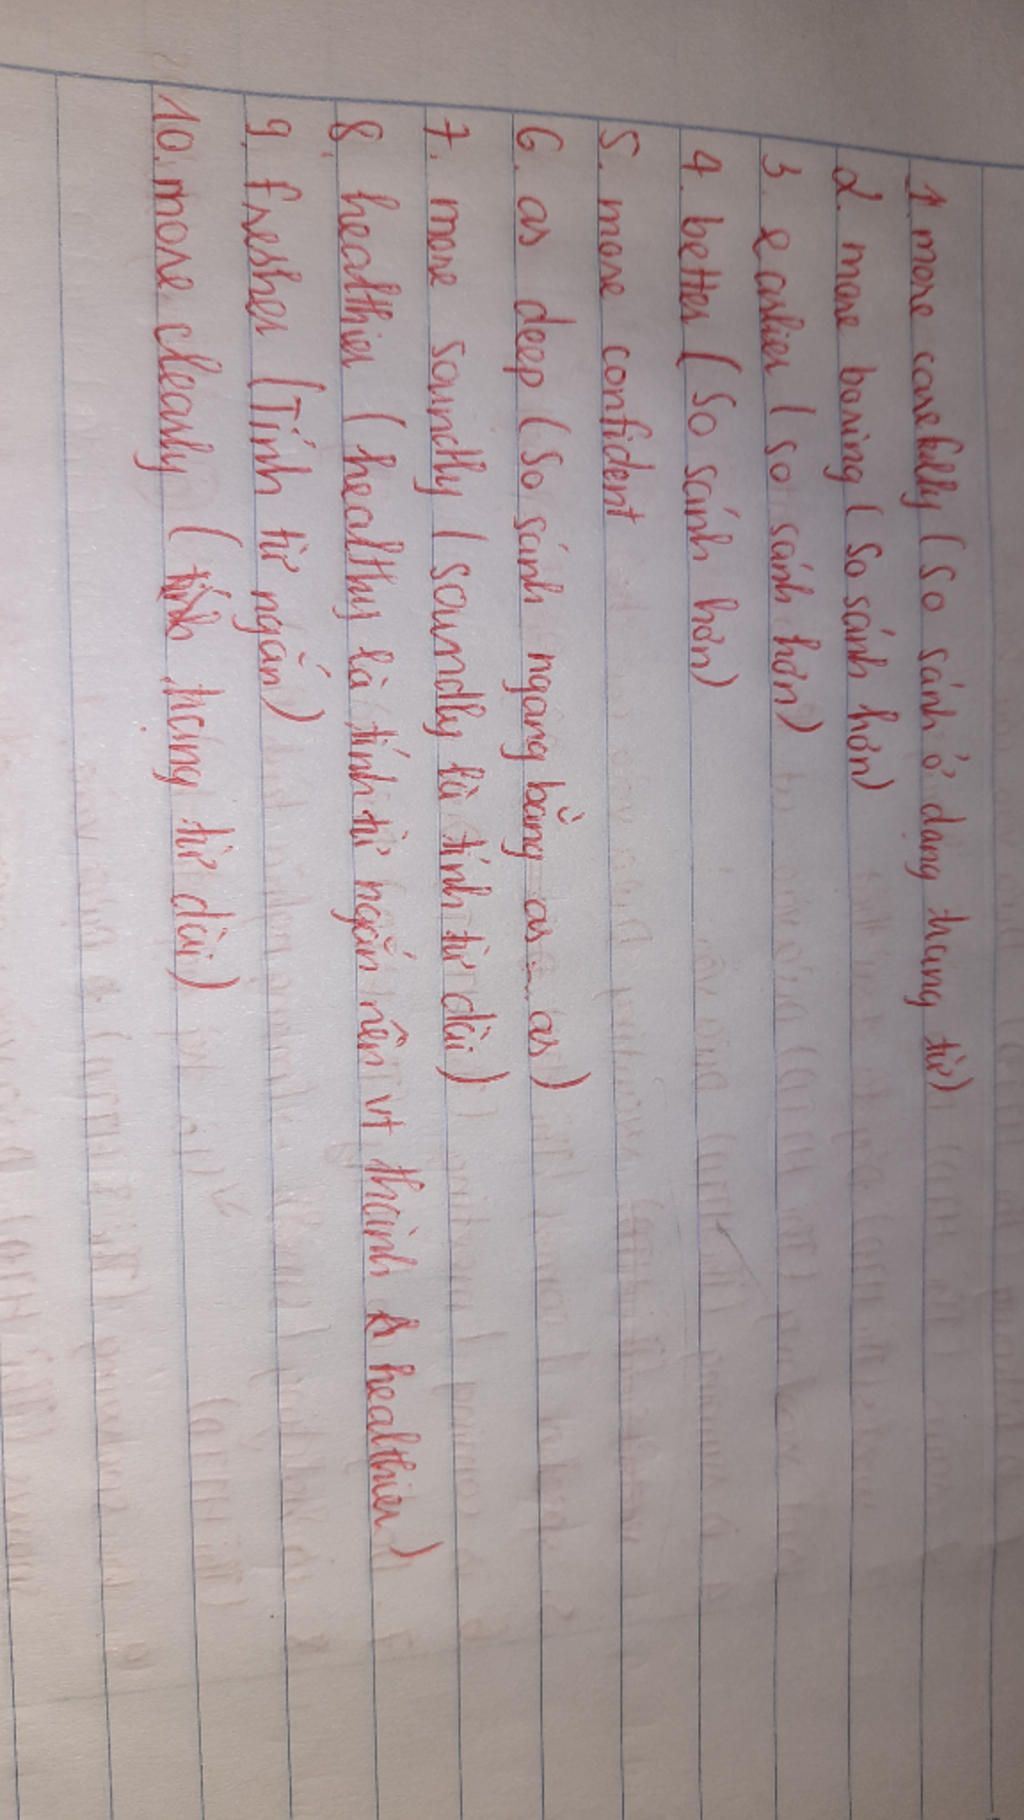 1. more carefully (so sánh ở dạng trạng từ)
2. more boring (so sánh hơn)
3. earlier (so sánh hơn)
4. better (so sánh hơn)
5. more confident
6. as deep (so sánh ngang bằng as - as)
7. more soundly (soundly là tính từ dài)
8. healthier (healthy là tính từ ngắn nên vt thành healthier)
9. fresher (Tính từ ngắn)
10. more clearly (trạng từ dài)